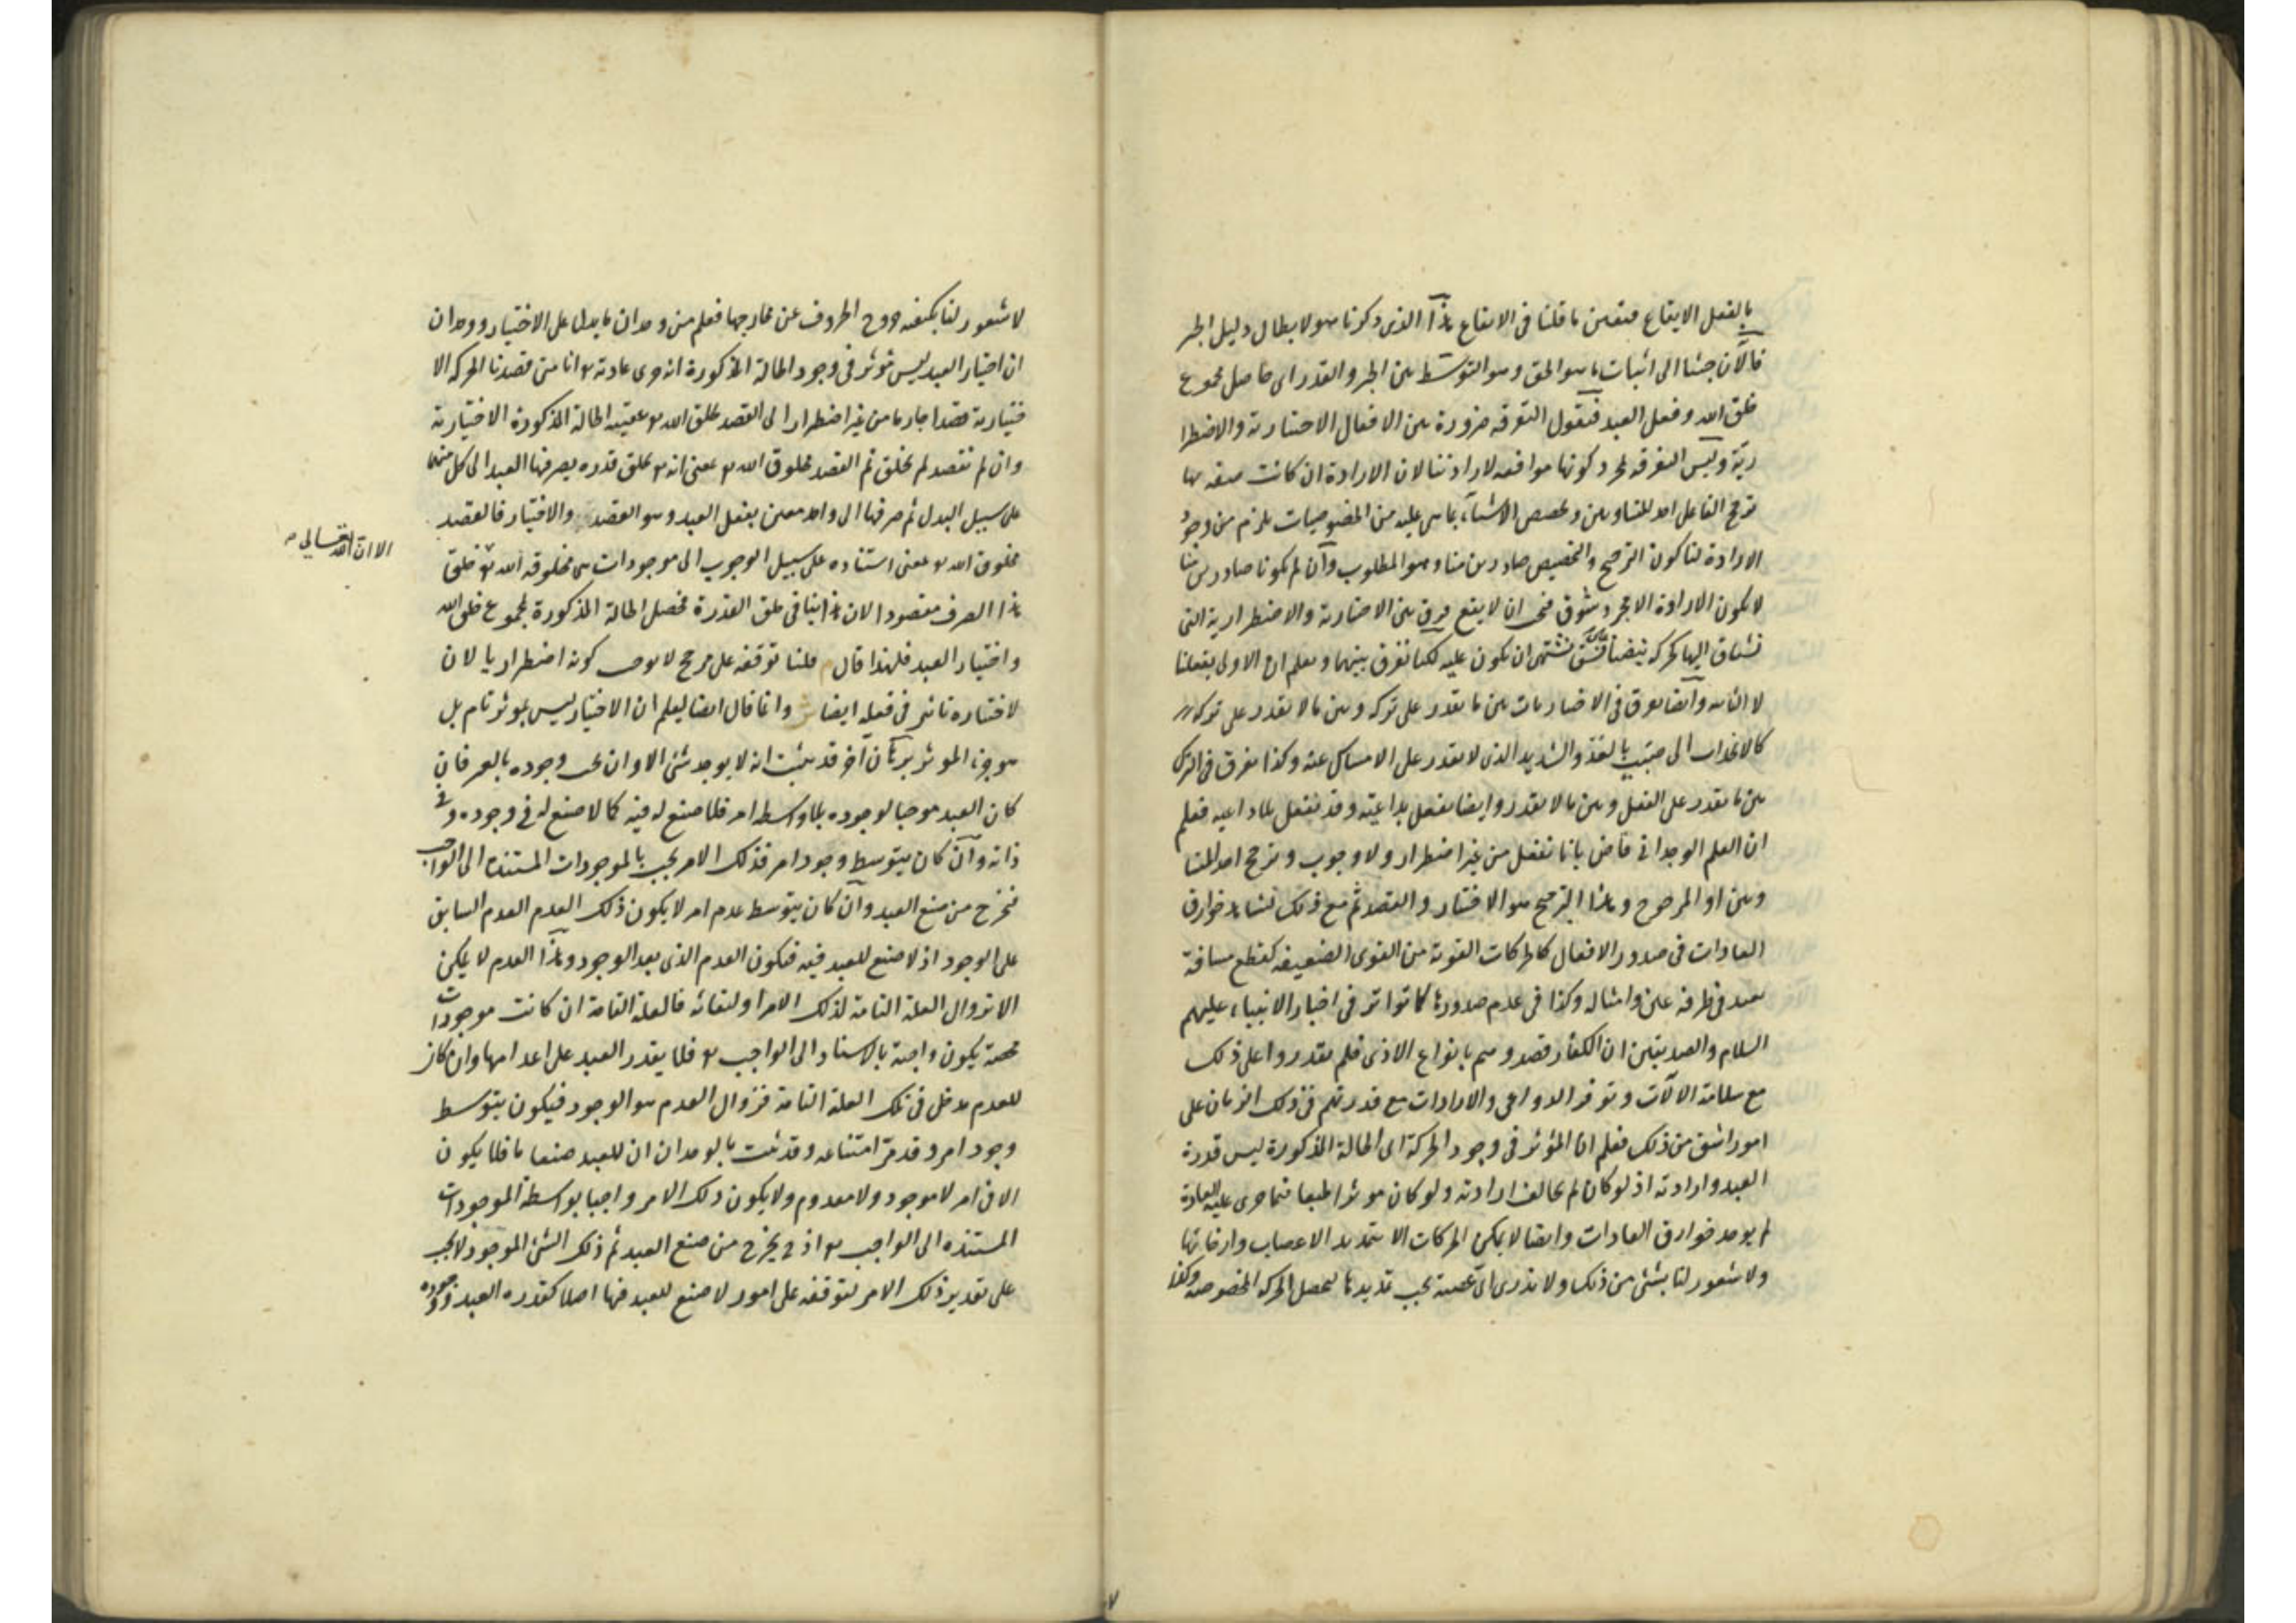 بالفعل الايقاع فتعين ما قلنا فى الايقاع هذا الذى ذكرنا هو لابطال دليل الجبر
فالآن جئنا الى اثبات ما هو الحق وهو التوسط بين الجبر والقدر اى حاصل بمجموع
خلق الله وفعل العبد فنقول التفرقة ضرورة بين الافعال الاختيارية والاضطرا
رية وليس التفرقة لمجرد كونها موافقه لارادتنا لان الارادة ان كانت صفه بها
ترجح الفاعل احد المتساويين وتخصص الاشياء بما هى عليه من الخصوصيات يلزم من وجود
الارادة لنا كون الترجيح والتخصيص صادرين منا وهو المطلوب وان لم يكونا صادرين منا
لا يكون الارادة الا مجرد شوق فيجب ان لا يقع فرق بين الاختيارية والاضطرارية التى
نشتاق اليها كحركة نبضنا على نسق نشتهى ان نكون عليه لكنا نفرق بينهما ونعلم ان الاولى بفعلنا
لا الثانية وايضا نفرق فى الاختياريات بين ما نقدر على تركه وبين ما لا نقدر على تركه
كالانحدار الى صبب بالعدو الشديد الذى لا نقدر على الامساك عنه وكذا نفرق فى الترك
بين ما نقدر على الفعل وبين ما لا نقدر وايضا نفعل بداعية وقد نفعل بلا داعيه فعلم
ان العلم الوجدانى قاض بانا نفعل من غير اضطرار ولا وجوب ونرجح احد المتسا
ويين او المرجوح وهذا الترجيح هو الاختيار والقصد ثم مع ذلك نشاهد خوارق
العادات فى صدور الافعال كالحركات القوية من القوى الضعيفه كقطع مسافة
بعيدة فى طرفة عين وامثاله وكذا فى عدم صدورها كما تواتر فى اخبار الانبياء عليهم
السلام والعبد يتيقن ان الكفار قصدوهم بانواع الاذى فلم يقدروا على ذلك
مع سلامة الآلات وتوفر الدواعى والارادات مع قدرتهم فى ذلك الزمان على
امور اشق من ذلك فعلم ان المؤثر فى وجود الحركة اى الحالة المذكورة ليس قدرة
العبد وارادته اذ لو كان لم يخالف ارادته ولو كان مؤثرا طبعا فيما جرى عليه العادة
لم يوجد خوارق العادات وايضا لا يمكن الحركات الا بتمديد الاعصاب وارخائها
ولا شعور لنا بشئ من ذلك ولا ندرى اى عصبة يجب تمديدها لتحصل الحركة المخصوصة وكذا
لا شعور لنا بكيفيه خروج الحروف عن مخارجها فعلم من وجدان ما يدل على الاختيار ووجدان
ان اختيار العبد ليس مؤثر فى وجود الحالة المذكورة انه جرى عادته تع انا متى قصدنا الحركة الا
ختيارية قصدا جازما من غير اضطرار الى القصد يخلق الله تع عقيبه الحالة المذكورة الاختيارية
وان لم نقصد لم يخلق ثم القصد مخلوق الله تع بمعنى انه تع خلق قدرة يصرفها العبد الى كل منهما
على سبيل البدل ثم صرفها الى واحد معين بفعل العبد وهو القصد والاختيار فالقصد
مخلوق الله تع بمعنى استناده على سبيل الوجوب الى موجودات هى مخلوقة لله تع خلق
الا ان الله تعالى
هذا الصرف مقصودا لان هذا ينافى خلق القدرة فحصل الحالة المذكورة بمجموع خلق الله
واختيار العبد فلهذا قال م قلنا توقفه على مرجح لا يوجب كونه اضطراريا لان
لاختياره تاثير فى فعله ايضا ش وانما قال ايضا ليعلم ان الاختيار ليس بمؤثر تام بل
هو جزء المؤثر برهان آخر قد ثبت انه لا يوجد شئ الا وان يجب وجوده بالغير فان
كان العبد موجبا لوجوده بلا واسطه امر فلا صنع له فيه كما لا صنع له فى وجوده وفى
ذاته وان كان بتوسط وجود امر فذلك الامر يجب بالموجودات المستندة الى الواجب
فخرج من صنع العبد وان كان بتوسط عدم امر لا يكون ذلك العدم العدم السابق
على الوجود اذ لا صنع للعبد فيه فيكون العدم الذى بعد الوجود وهذا العدم لا يمكن
الا بزوال العلة التامة لذلك الامر او لبقائه فالعلة التامة ان كانت موجودات
محضة يكون واجبة بالاستناد الى الواجب تع فلا يقدر العبد على اعدامها وان كان
للعدم مدخل فى تلك العلة التامة فزوال العدم هو الوجود فيكون بتوسط
وجود امر وقد مر امتناعه وقد ثبت بالوجدان ان للعبد صنعا ما فلا يكون
الا فى امر لا موجود ولا معدوم ولا يكون ذلك الامر واجبا بواسطة الموجودات
المستندة الى الواجب تع اذ ح يخرج من صنع العبد ثم ذلك الشئ الموجود لا يجب
على تقدير ذلك الامر لتوقفه على امور لا صنع للعبد فيها اصلا كقدرة العبد ووجوده